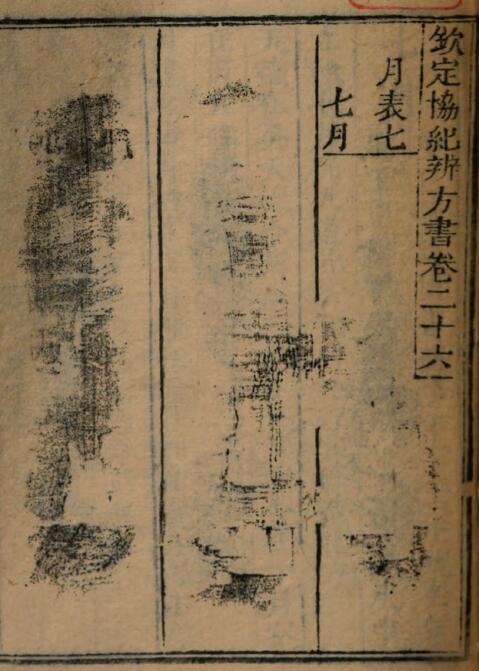 欽定協紀辨方書卷二十六
月表七
七月